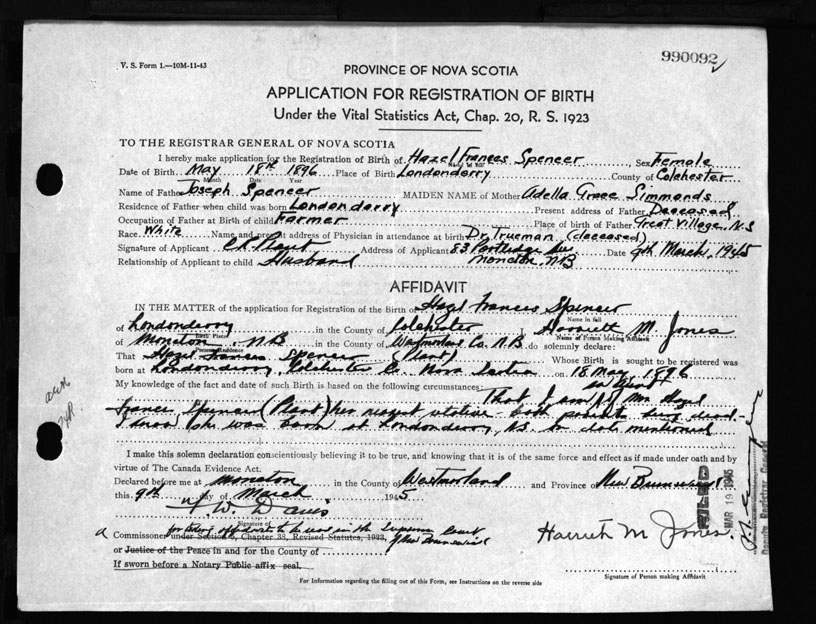 990092
V. S. Form 1.—10M-11-43
PROVINCE OF NOVA SCOTIA
APPLICATION FOR REGISTRATION OF BIRTH
Under the Vital Statistics Act, Chap. 20, R. S. 1923
TO THE REGISTRAR GENERAL OF NOVA SCOTIA
I hereby make application for the Registration of Birth of Hazel Frances Spencer, Sex Female
Name in full
Date of Birth May 18th 1896 Place of Birth Londonderry County of Colchester
Month Date Year
Name of Father Joseph Spencer MAIDEN NAME of Mother Adella Grace Simmonds
Residence of Father when child was born Londonderry Present address of Father Deceased
Occupation of Father at Birth of child Farmer Place of birth of Father Great Village, N.S
Race White Name and present address of Physician in attendance at birth Dr. Trueman (deceased)
Signature of Applicant Plant Address of Applicant 53 Ave Date 9th March, 1945
Relationship of Applicant to child Husband Moncton, N.B
AFFIDAVIT
IN THE MATTER of the application for Registration of the Birth of Hazel Frances Spencer
Name in full
of Londonderry in the County of Colchester, I Harriett M Jones
Birth Place Name of Person Making Affidavit
of Moncton, N.B in the County of Westmorland Co. N.B. do solemnly declare:
Present Residence
That Hazel Frances Spencer (Plant) Whose Birth is sought to be registered was
born at Londonderry, Colchester Co. Nova Scotia on 18 May, 1896
My knowledge of the fact and date of such Birth is based on the following circumstances: That I am Mrs Hazel
an Aunt
Frances Spencer (Plant) her nearest relative - both parents being dead -
I know she was born at Londonderry, N.S. on date mentioned
I make this solemn declaration conscientiously believing it to be true, and knowing that it is of the same force and effect as if made under oath and by
virtue of The Canada Evidence Act.
Declared before me at Moncton in the County of Westmorland and Province of New Brunswick
this 9th day of March 1945
W. Davis
Signature of
for taking affidavits to be used in the Supreme Court
A Commissioner under Section 6, Chapter 38, Revised Statutes, 1923, of New Brunswick
or Justice of the Peace in and for the County of
If sworn before a Notary Public affix seal.
Harriett M Jones.
Signature of Person making Affidavit
For Information regarding the filling out of this Form, see Instructions on the reverse side
FILED
MAR 19 1945
Deputy Registrar General